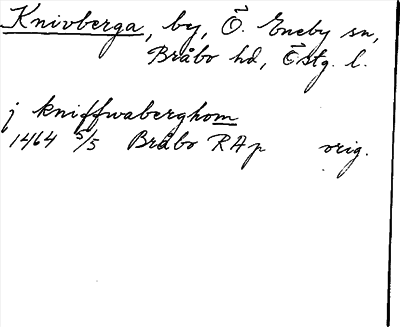 Knivberga, by, Ö. Eneby sn,
Bråbo hd, Östg. l.
j kniffwaberghom
1464 5/5 Bråbo RAp orig.